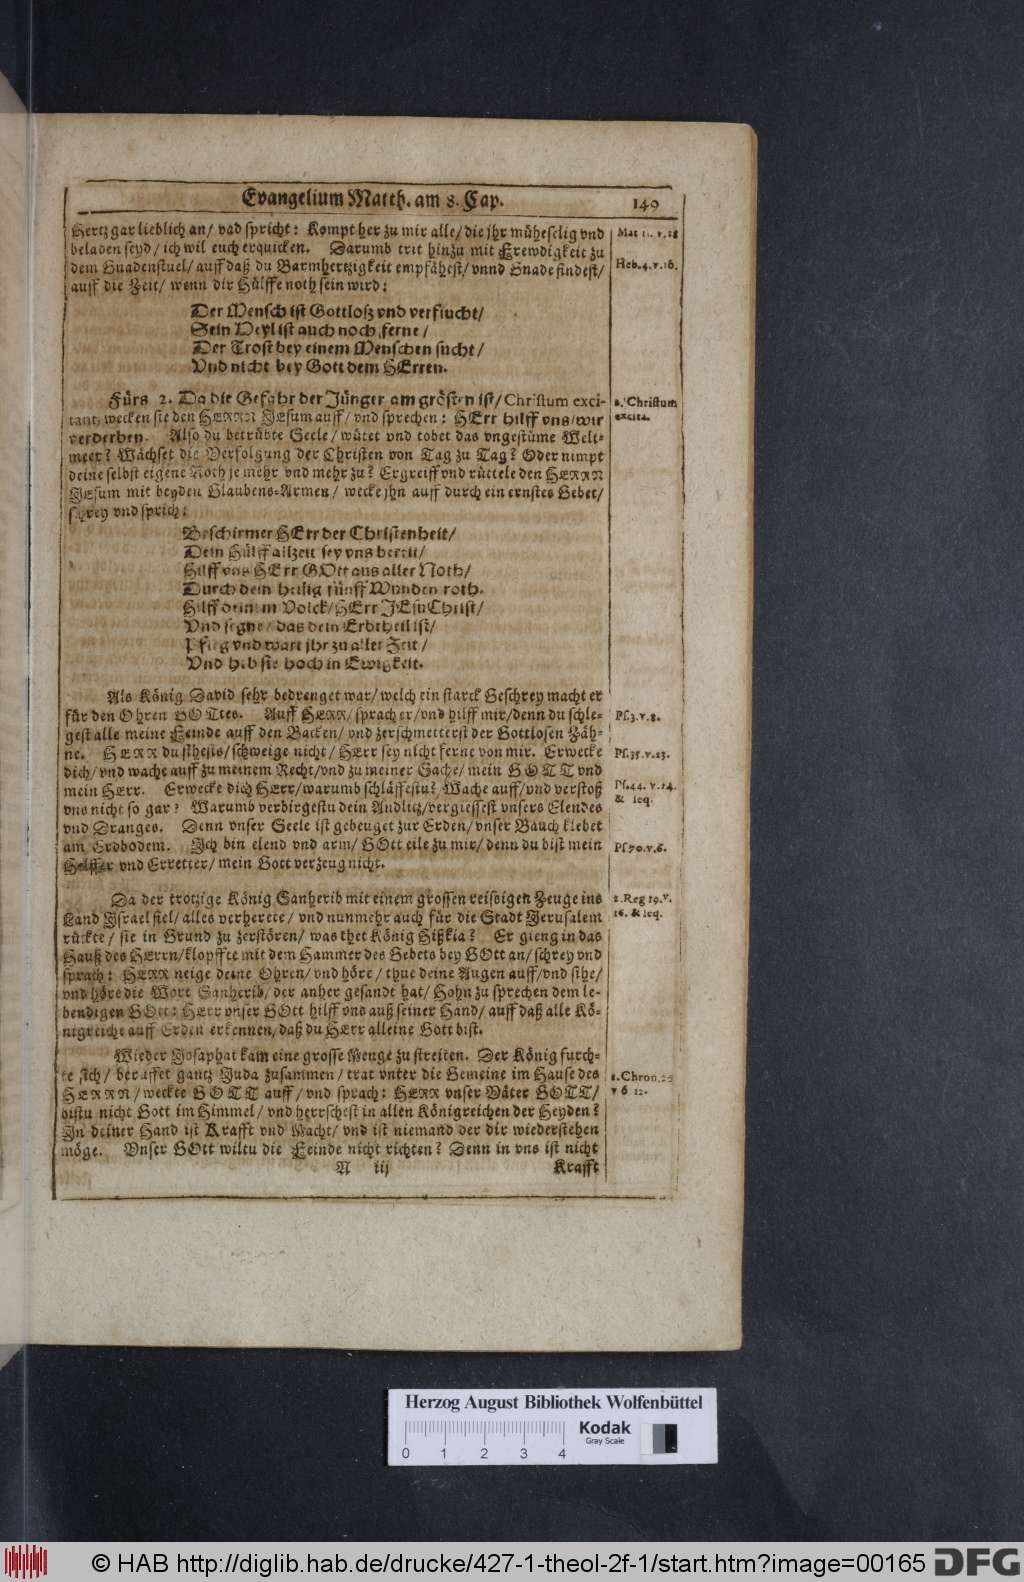 Evangelium Matth. am 8. Cap.
149
Hertz gar lieblich an/ vnd spricht: Kompt her zu mir alle/ die jhr müheselig vnd
beladen seyd/ ich wil euch erquicken. Darumb trit hinzu mit Frewdigkeit zu
dem Gnadenstuel/ auff daß du Barmhertzigkeit empfähest/ vnnd Gnade findest/
auff die Zeit/ wenn dir Hülffe noth sein wird:
Mat 11. v. 28
Heb. 4. v. 16.
Der Mensch ist Gottloß vnd verflucht/
Sein Heyl ist auch noch ferne/
Der Trost bey einem Menschen sucht/
Vnd nicht bey Gott dem HErren.
Fürs 2. Da die Gefahr der Jünger am grösten ist/ Christum exci-
tant, wecken sie den HERRN JEsum auff/ vnd sprechen: HErr hilff vns/ wir
verderben. Also du betrübte Seele/ wütet vnd tobet das vngestüme Welt-
meer? Wächset die Verfolgung der Christen von Tag zu Tag? Oder nimpt
deine selbst eigene Noth je mehr vnd mehr zu? Ergreiff vnd rüttele den HERRN
JEsum mit beyden Glaubens-Armen/ wecke jhn auff durch ein ernstes Gebet/
schrey vnd sprich:
2. Christum
excita.
Beschirmer HErr der Christenheit/
Dein Hülff allzeit sey vns bereit/
Hilff vns HErr GOtt aus aller Noth/
Durch dein heilig fünff Wunden roth.
Hilff deinem Volck/ HErr JEsu Christ/
Vnd segne/ das dein Erbtheil ist/
Pfleg vnd wart jhr zu aller Zeit/
Vnd heb sie hoch in Ewigkeit.
Als König David sehr bedrenget war/ welch ein starck Geschrey macht er
für den Ohren GOTtes. Auff HERR/ sprach er/ vnd hilff mir/ denn du schle-
gest alle meine Feinde auff den Backen/ vnd zerschmetterst der Gottlosen Zäh-
ne. HERR du sihests/ schweige nicht/ HErr sey nicht ferne von mir. Erwecke
dich/ vnd wache auff zu meinem Recht/ vnd zu meiner Sache/ mein GOTT vnd
mein HErr. Erwecke dich HErr/ warumb schläffestu? Wache auff/ vnd verstoß
vns nicht so gar? Warumb verbirgestu dein Andlitz/ vergiessest vnsers Elendes
vnd Dranges. Denn vnser Seele ist gebeuget zur Erden/ vnser Bauch klebet
am Erdbodem. Ich bin elend vnd arm/ GOtt eile zu mir/ denn du bist mein
Helffer vnd Erretter/ mein Gott verzeug nicht.
Ps. 3. v. 8.
Ps. 35. v. 23.
Ps. 44. v. 24.
& seq.
Ps 70. v. 6.
Da der trotzige König Sanherib mit einem grossen reissigen Zeuge ins
Land Israel fiel/ alles verherete/ vnd nunmehr auch für die Stadt Jerusalem
rückte/ sie in Grund zu zerstören/ was thet König Hißkia? Er gieng in das
Hauß des HErrn/ klopffte mit dem Hammer des Gebets bey GOtt an/ schrey vnd
sprach: HERR neige deine Ohren/ vnd höre/ thue deine Augen auff/ vnd sihe/
vnd höre die Wort Sanherib/ der anher gesandt hat/ Hohn zu sprechen dem le-
bendigen GOtt: HErr vnser GOtt hilff vns auß seiner Hand/ auff daß alle Kö-
nigreiche auff Erden erkennen, daß du HErr alleine Gott bist.
2. Reg 19. v.
16. & seq.
Wieder Josaphat kam eine grosse Menge zu streiten. Der König furch-
te sich/ beruffet gantz Juda zusammen/ trat vnter die Gemeine im Hause des
HERRN/ weckte GOTT auff/ vnd sprach: HERR vnser Väter GOTT/
bistu nicht Gott im Himmel/ vnd herrschest in allen Königreichen der Heyden?
In deiner Hand ist Krafft vnd Macht/ vnd ist niemand der dir wiederstehen
möge. Vnser GOtt wiltu die Feinde nicht richten? Denn in vns ist nicht
2. Chron. 20
v 6 12.
N iij
Krafft
Herzog August Bibliothek Wolfenbüttel
Kodak
Gray Scale
0 1 2 3 4
© HAB http://diglib.hab.de/drucke/427-1-theol-2f-1/start.htm?image=00165
DFG